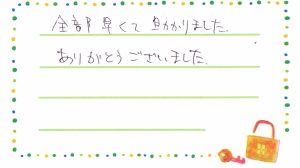 全部早くて助かりました。
ありがとうございました。